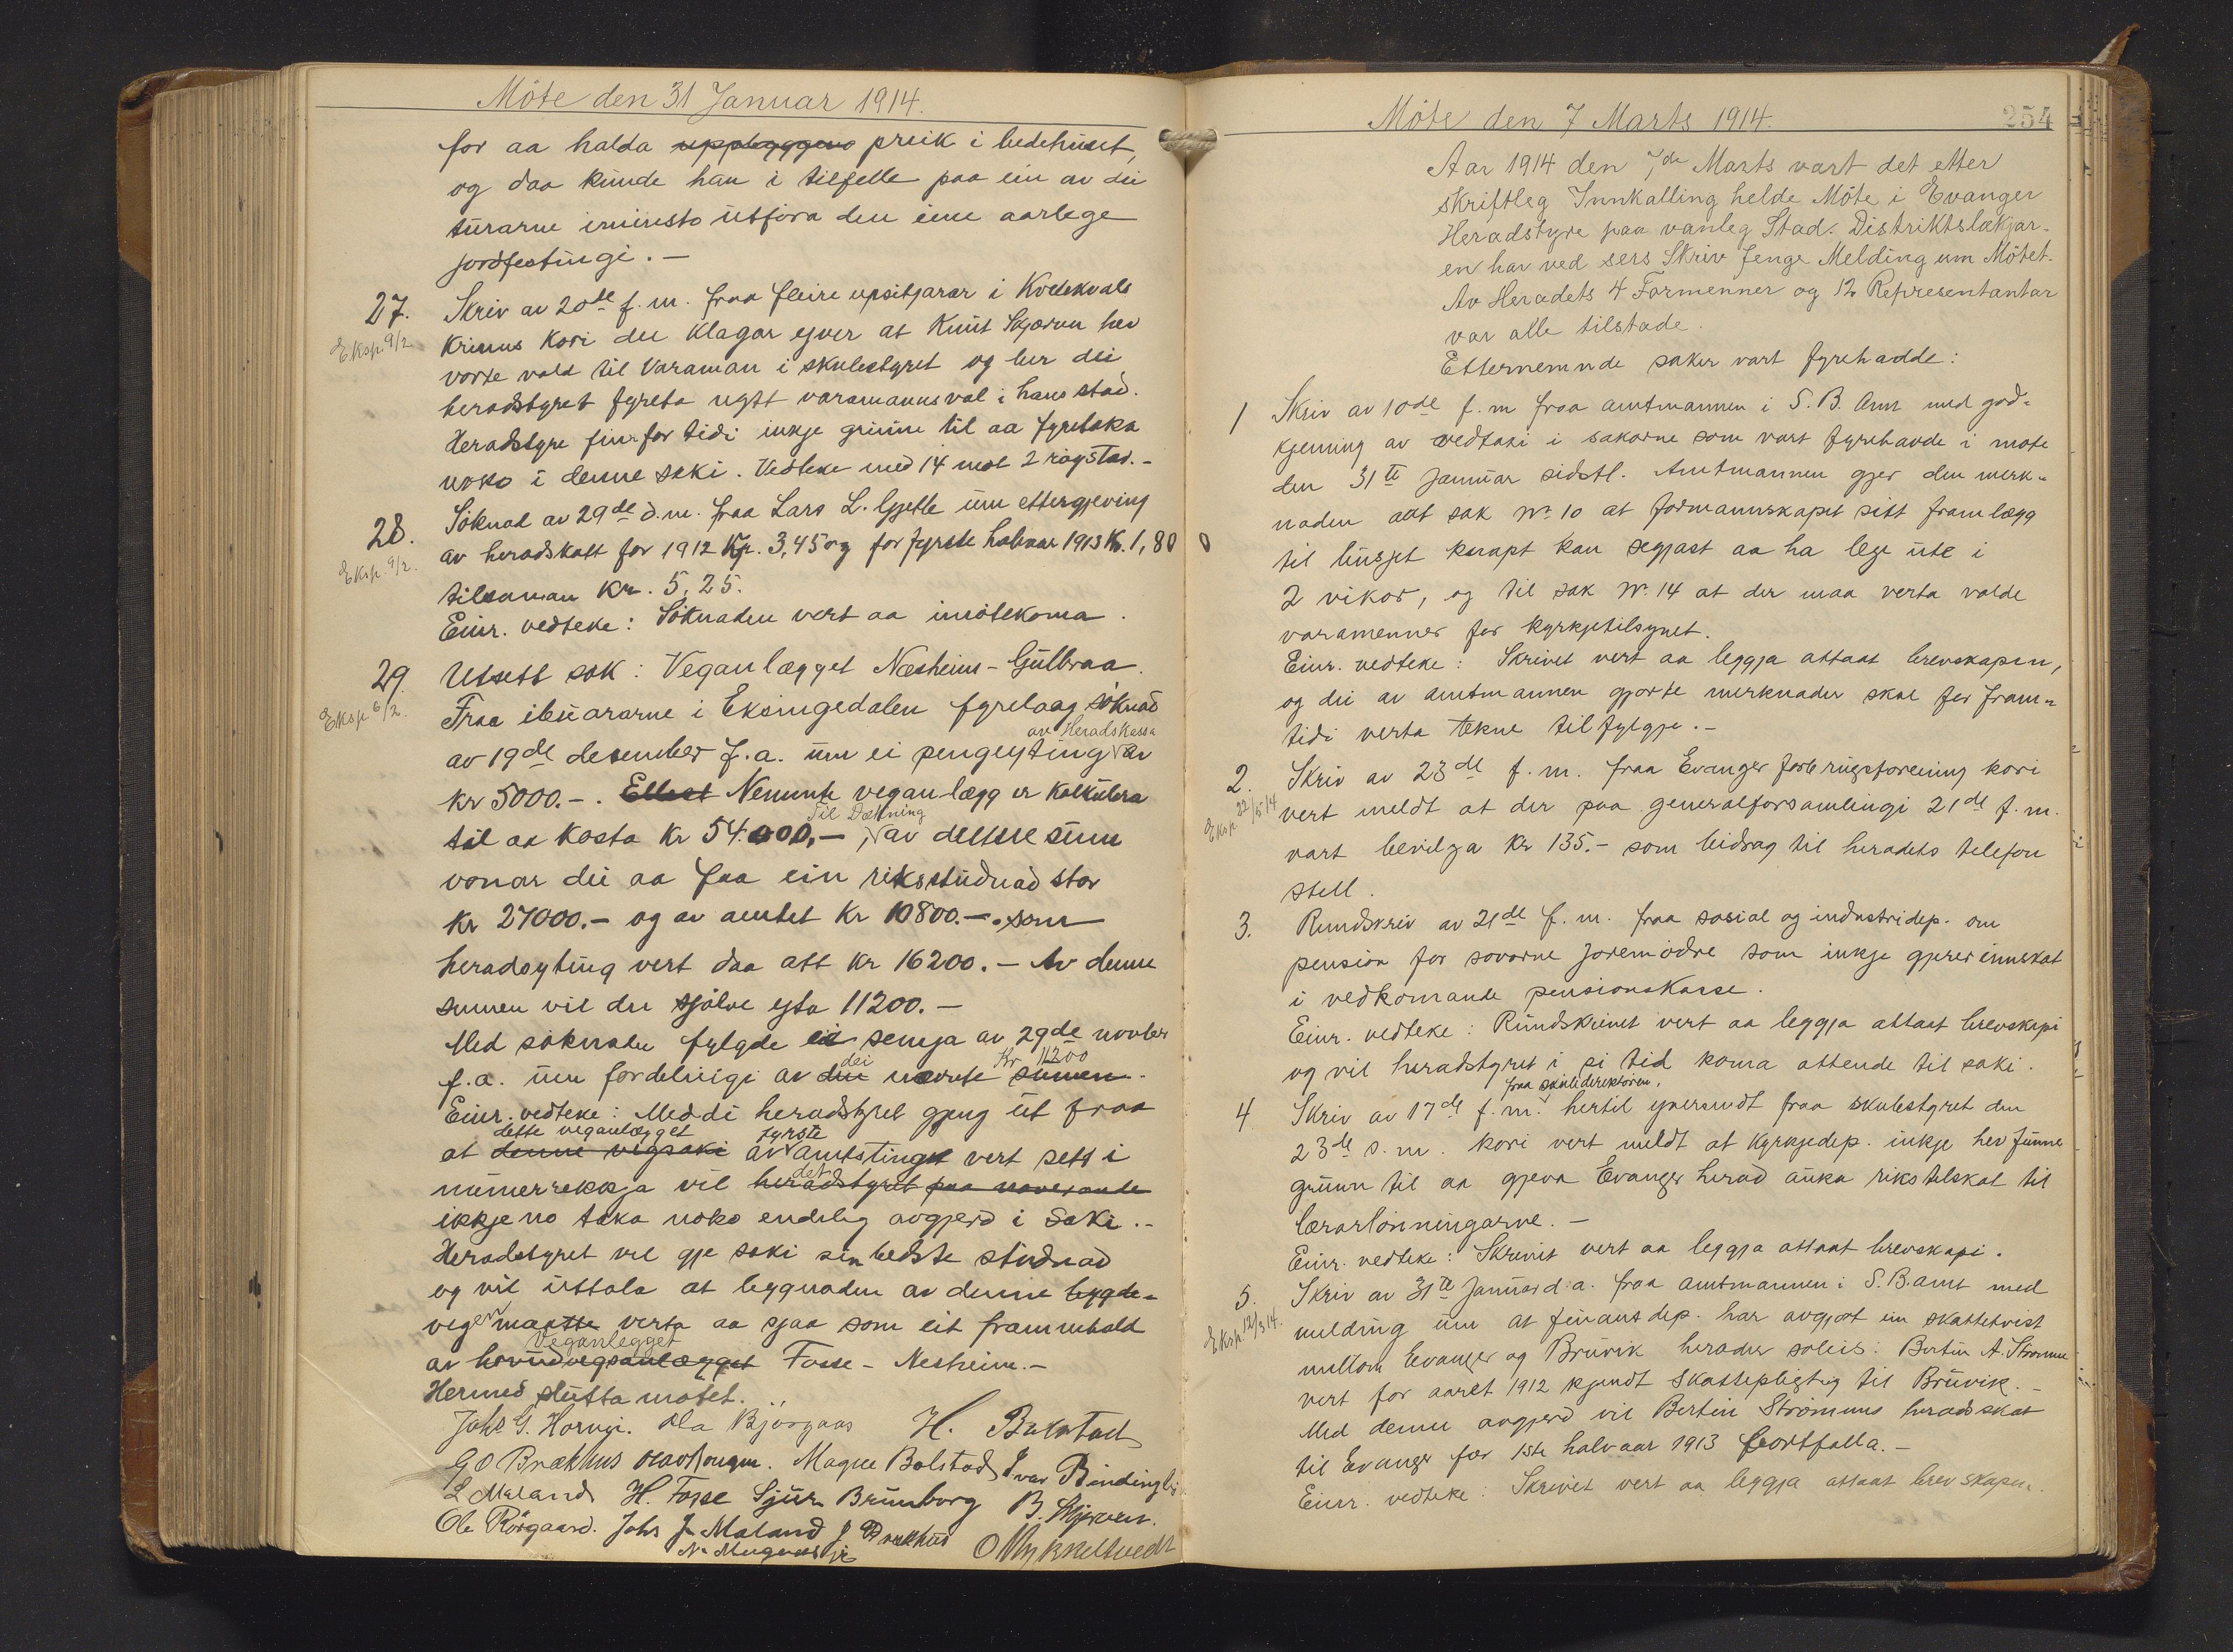 Möte den 31 Januar 1914.
for aa halda uppbyggens preik i bedehuset,
og daa kunde han i tilfelle paa ein av dei
turarne iminsto utföra den eine aarlege
jordfestingi. —
27. Skriv av 20de f.m. fraa fleire upsitjarar i Kvelekvals
Eksp. 9/2 krinns kori dei klagar yver at Knut Skjerven hev
vorte vald til Varaman i skulestyret og ber dei
heradstyret fyreta nytt varamannsval i hans stad.
Heradstyre finn for tidi inkje grunn til aa fyretaka
noko i denne saki. Vedteke med 14 mot 2 röystar. -
28. Söknad av 29de d.m. fraa Lars L. Gjetle um ettergjeving
Eksp. 9/2. av heradskatt for 1912 Kr. 3,45 og for fyrste halvaar 1913 Kr. 1,80
tilsaman Kr. 5,25.
Einr. vedteke: Söknaden vert aa imötekoma.
29. Utsett sak: Veganlægget Næsheim - Gulbraa.
Eksp 6/2. Fraa ibuararne i Eksingedalen fyrelaag söknad
av Heradskassa
av 19de desember f.a. um ei pengeyting av
kr 5000.-. Ellest Nemnte veganlægg er kalkulera
Til Dækning
til aa kosta kr 54.000,- , av denne sum
vonar dei aa faa ein riksstudnad stor
kr 27000.- og av amtet kr 10800.-. som
heradsyting vert daa att kr 16200. - Av denne
sumen vil dei sjölve yta 11200. -
Med söknaden fylgde ei semja av 29de novbr
dei Kr 11200
f.a. um fordelingi av den nævnte sumen.
Einr. vedteke: Meddi heradstyret gjeng ut fraa
dette veganlægget fyrste
at denne vegsaki av amtstinget vert sett i
det
numerrekkja vil heradstyret paa noverande
ikkje no taka noko endeleg avgjerd i saki. -
Heradstyret vil gje saki sin bedste studnad
og vil uttala at bygnaden av denne bygde-
vegen maatte verta aa sjaa som eit framhald
Veganlegget
av hovudvegsanlægget Fosse - Nesheim. -
Hermed slutta mötet.
Johs G. Horvei. Ola Björgaas H. Bakstad
G O Brækhus Magne Bolstad Ivar Bindingbö
L Mæland H. Fosse Sjur Brunborg B. Skjerven.
Ole Rörgaard. Johs J Mæland J Brækhus O Mykkeltvedt
N. Mugaas jr
Möte den 7 Marts 1914. 254
Aar 1914 den 7de Marts vart det etter
skriftleg Innkalling helde Möte i Evanger
Heradstyre paa vanleg Stad. Distriktslækjar-
en har ved sers Skriv fenge Melding um Mötet.
Av Heradets 4 Formenner og 12 Representantar
var alle tilstade.
Etternemnde saker vart fyrehadde:
1 Skriv av 10de f.m fraa amtmannen i S. B. Amt med god-
kjenning av vedtaki i sakorne som vart fyrehavde i möte
den 31te Januar sidstl. Amtmannen gjer den merk-
naden att sak No 10 at formannskapet sitt framlægg
til budsjet knapt kan segjast aa ha lege ute i
2 vikor, og til sak No 14 at der maa verta valde
varamenner for kyrkjetilsynet.
Einr. vedteke: Skrivet vert aa leggja attaat brevskapen,
og dei av amtmannen gjorte merknader skal for fram-
tidi verta tekne tilfylgje. -
2. Skriv av 23de f.m. fraa Evanger forbrugsforening kori
Eksp 22/5 14 vert meldt at der paa generalforsamlingi 21de f.m.
vart bevilga Kr 135.- som bidrag til heradets telefon
stell.
3. Rundskriv av 21de f.m. fraa sosial og industridep. om
pension for jordmödre som inkje gjerer innskot
i vedkomande pensionskasse.
Einr. vedteke: Rundskrivet vert aa leggja attaat brevskapi
og vil heradstyret i si tid koma attende til saki.
fraa skuledirektören,
4. Skriv av 17de f.m. hertil yversendt fraa skulestyret den
23de s.m. kori vert meldt at Kyrkjedep. inkje hev funne
grunn til aa gjeva Evanger herad auka rikstilskot til
lærarlönningarne. -
Einr. vedteke: Skrivet vert aa leggja attaat brevskapi.
5. Skriv av 31te Januar d.a. fraa amtmannen i S.B. amt med
Eksp. 12/3 14. melding um at finansdep. har avgjort ein skattetvist
millom Evanger og Bruvik herader soleis: Bertin A. Strömme
vert for aaret 1912 kjendt skattepligtig til Bruvik. -
Med denne avgjerd vil Bertin Strömmes heradsskat
til Evanger for 1ste halvaar 1913 bortfalla. -
Einr. vedteke: Skrivet vert aa leggja attaat brevskapen.